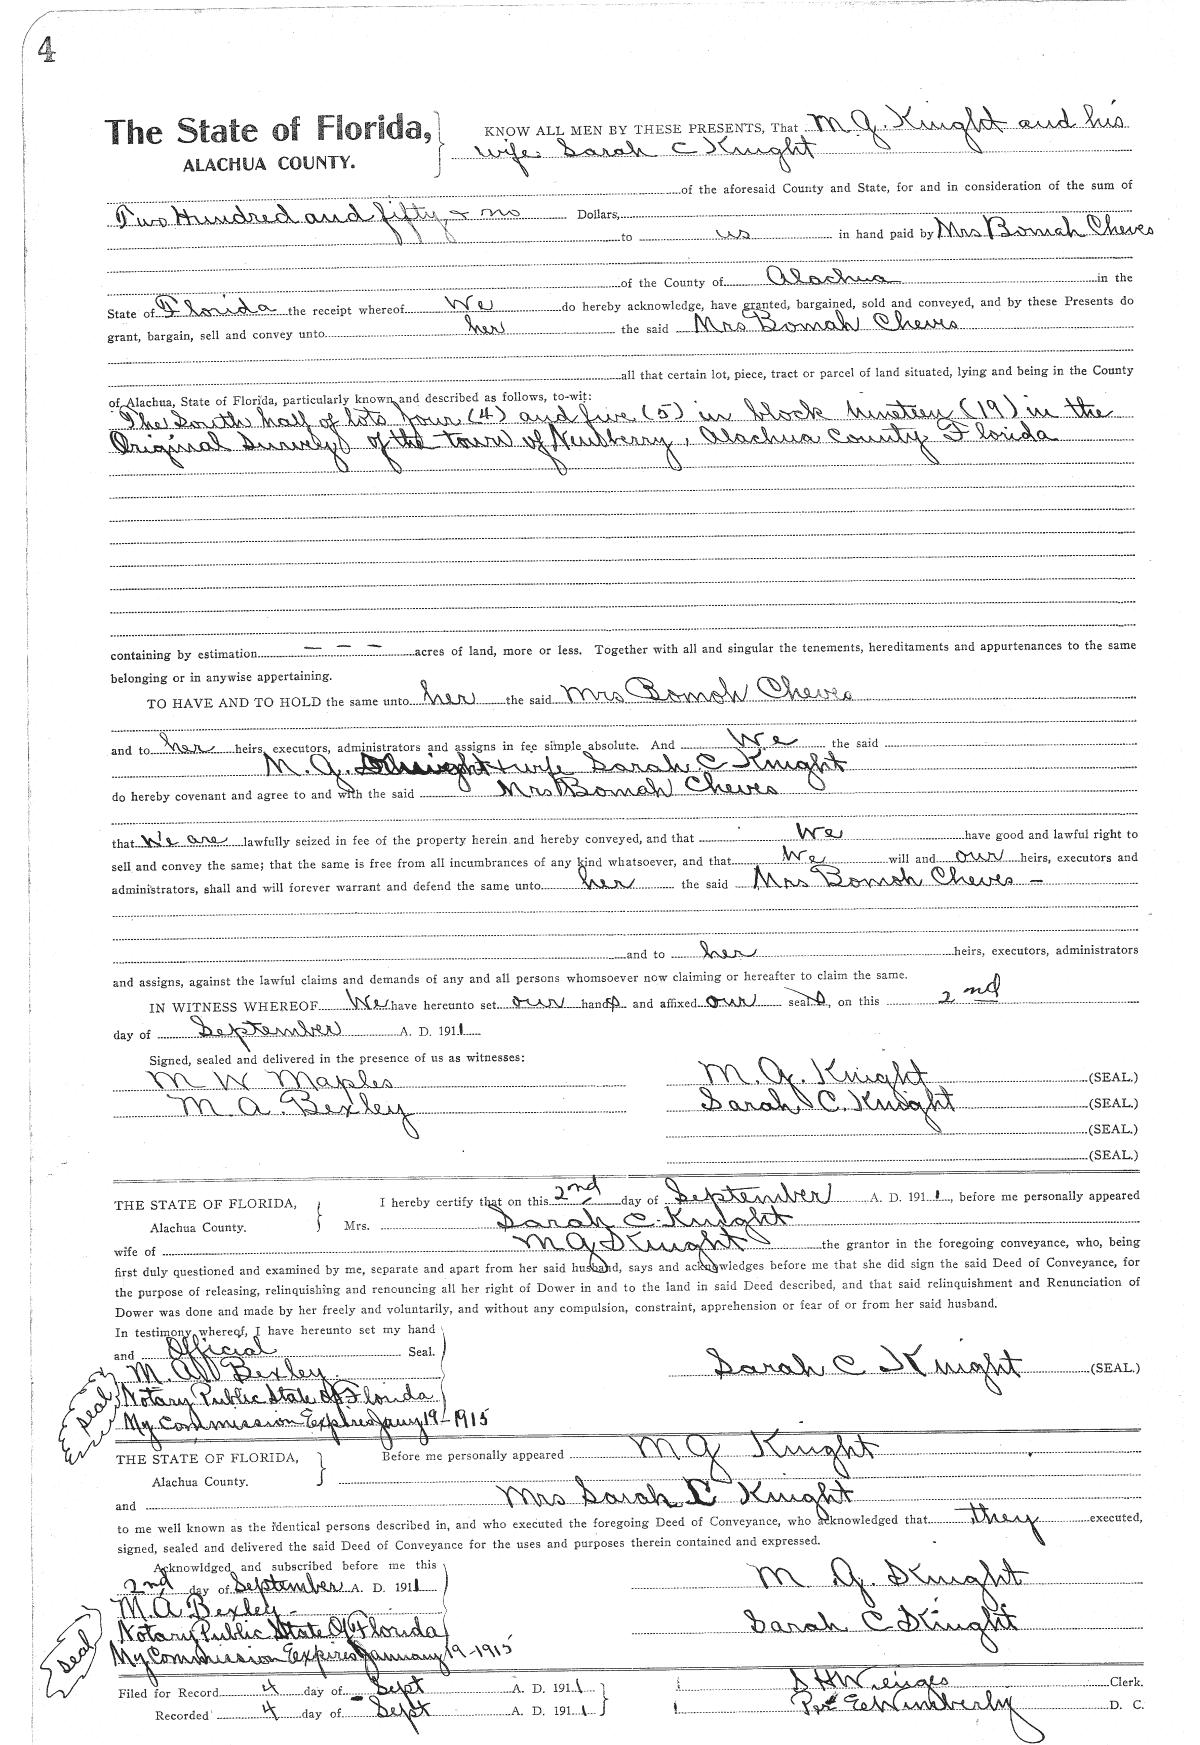 4
The State of Florida, KNOW ALL MEN BY THESE PRESENTS, That M. G. Knight and his
ALACHUA COUNTY. wife Sarah C Knight
of the aforesaid County and State, for and in consideration of the sum of
Two Hundred and fifty & no Dollars,
to us in hand paid by Mrs Bomah Cheves
of the County of Alachua in the
State of Florida the receipt whereof We do hereby acknowledge, have granted, bargained, sold and conveyed, and by these Presents do
grant, bargain, sell and convey unto her the said Mrs Bomah Cheves
all that certain lot, piece, tract or parcel of land situated, lying and being in the County
of Alachua, State of Florida, particularly known and described as follows, to-wit:
The South half of lots four (4) and five (5) in block nineteen (19) in the
Original Survey of the town of Newberry, Alachua County Florida
containing by estimation — — — acres of land, more or less. Together with all and singular the tenements, hereditaments and appurtenances to the same
belonging or in anywise appertaining.
TO HAVE AND TO HOLD the same unto her the said Mrs Bomah Cheves
and to her heirs, executors, administrators and assigns in fee simple absolute. And We the said
M. G. Knight + wife Sarah C Knight
do hereby covenant and agree to and with the said Mrs Bomah Cheves
that We are lawfully seized in fee of the property herein and hereby conveyed, and that We have good and lawful right to
sell and convey the same; that the same is free from all incumbrances of any kind whatsoever, and that We will and our heirs, executors and
administrators, shall and will forever warrant and defend the same unto her the said Mrs Bomah Cheves –
and to her heirs, executors, administrators
and assigns, against the lawful claims and demands of any and all persons whomsoever now claiming or hereafter to claim the same.
IN WITNESS WHEREOF We have hereunto set our hands and affixed our seals, on this 2nd
day of September A. D. 1911
Signed, sealed and delivered in the presence of us as witnesses:
M W Maples M. G. Knight (SEAL.)
M. A. Bexley Sarah C. Knight (SEAL.)
(SEAL.)
(SEAL.)
THE STATE OF FLORIDA, I hereby certify that on this 2nd day of September A. D. 1911, before me personally appeared
Alachua County. Mrs. Sarah C. Knight
wife of M G Knight the grantor in the foregoing conveyance, who, being
first duly questioned and examined by me, separate and apart from her said husband, says and acknowledges before me that she did sign the said Deed of Conveyance, for
the purpose of releasing, relinquishing and renouncing all her right of Dower in and to the land in said Deed described, and that said relinquishment and Renunciation of
Dower was done and made by her freely and voluntarily, and without any compulsion, constraint, apprehension or fear of or from her said husband.
In testimony whereof, I have hereunto set my hand
and Official Seal.
M. A. Bexley Sarah C Knight (SEAL)
Seal Notary Public State of Florida
My Commission Expires Jany 19-1915
THE STATE OF FLORIDA, Before me personally appeared M G Knight
Alachua County.
and Mrs Sarah C Knight
to me well known as the identical persons described in, and who executed the foregoing Deed of Conveyance, who acknowledged that they executed,
signed, sealed and delivered the said Deed of Conveyance for the uses and purposes therein contained and expressed.
Acknowldged and subscribed before me this
2nd day of September A. D. 1911 M. G. Knight
M. A Bexley Sarah C Knight
Notary Public State Of Florida
Seal My Commission Expires January 19-1915
Filed for Record 4 day of Sept A. D. 1911 S H Wienges Clerk.
Recorded 4 day of Sept A. D. 1911 Per E Wimberly D. C.